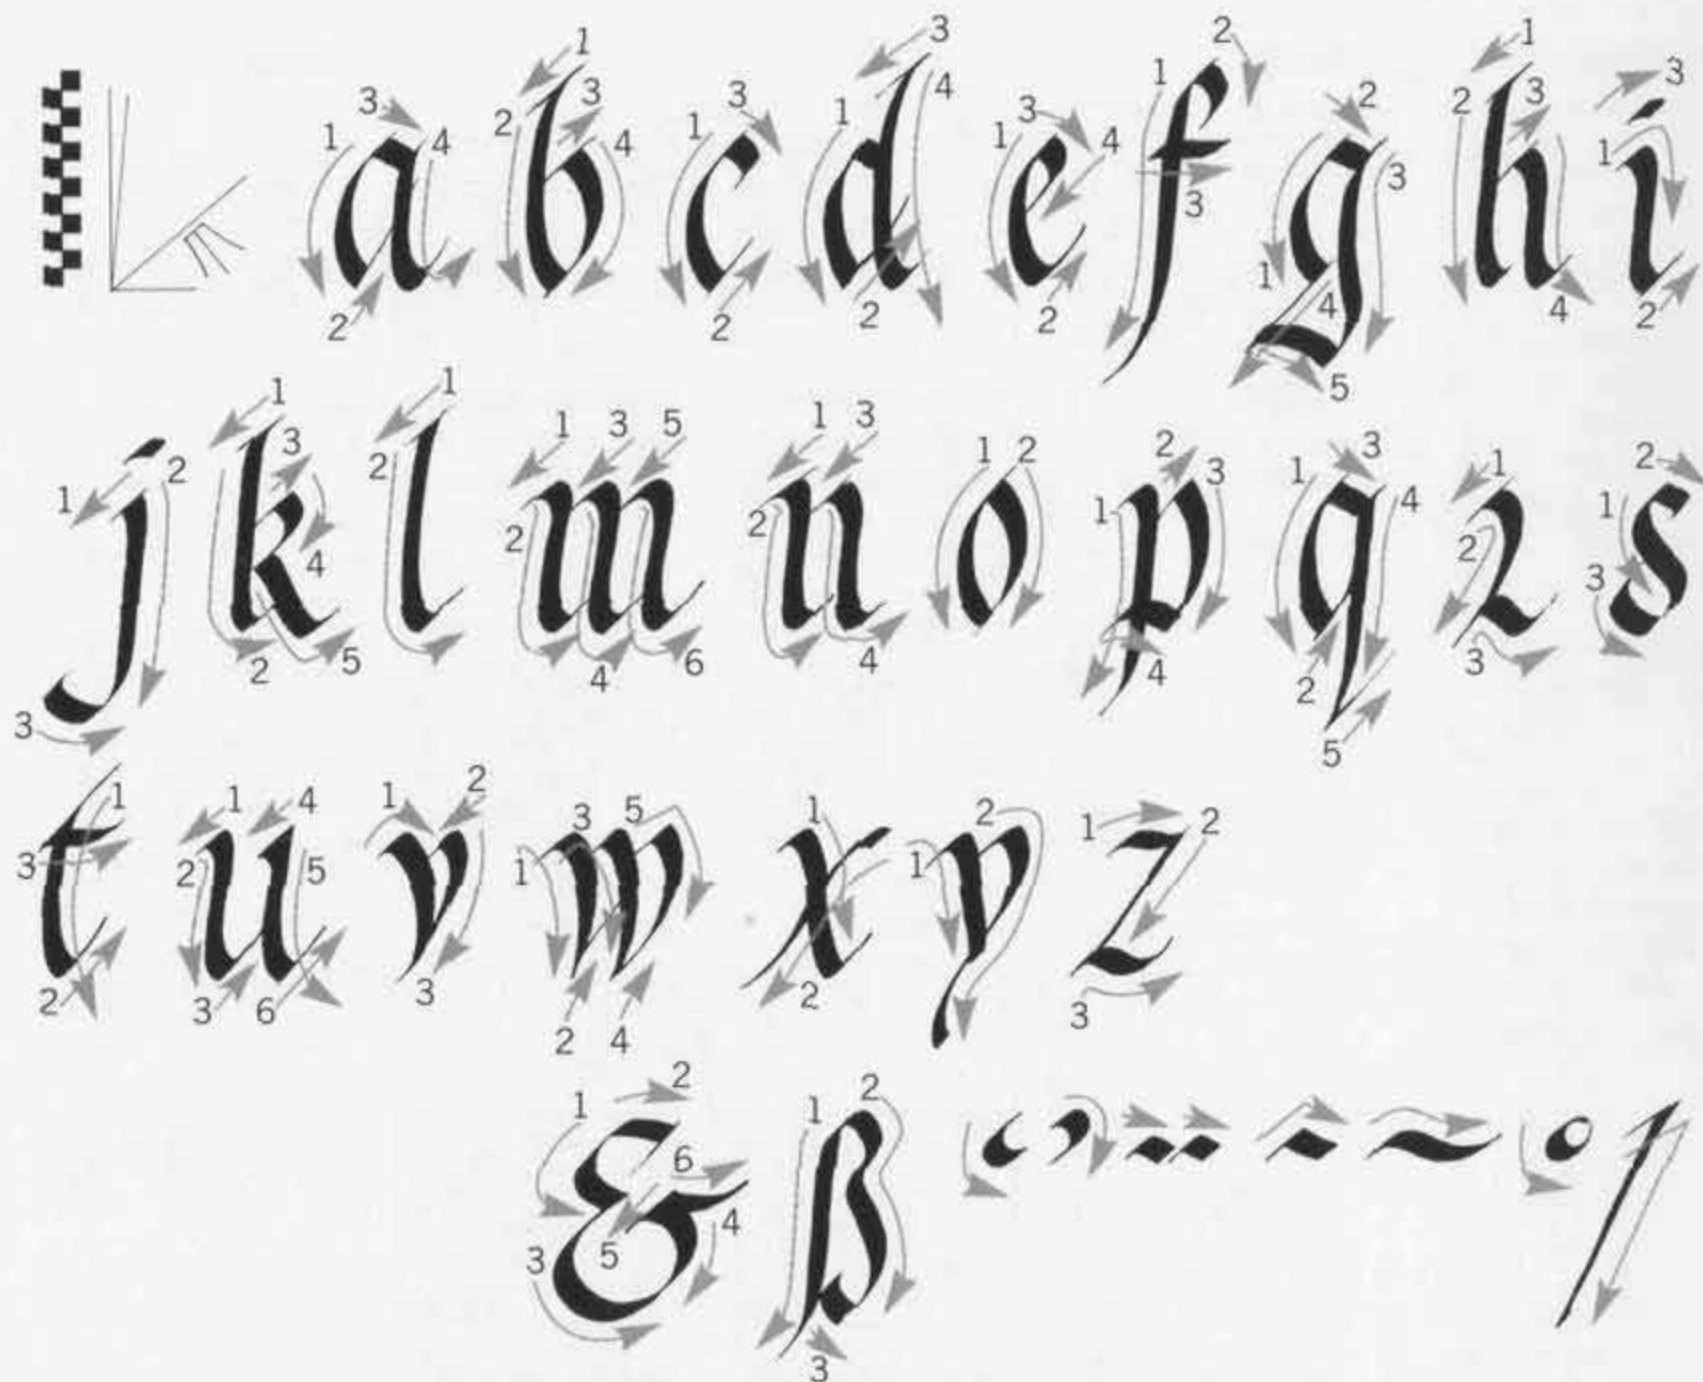 a b c d e f g h i
j k l m n o p q r s
t u v w x y z
& ß